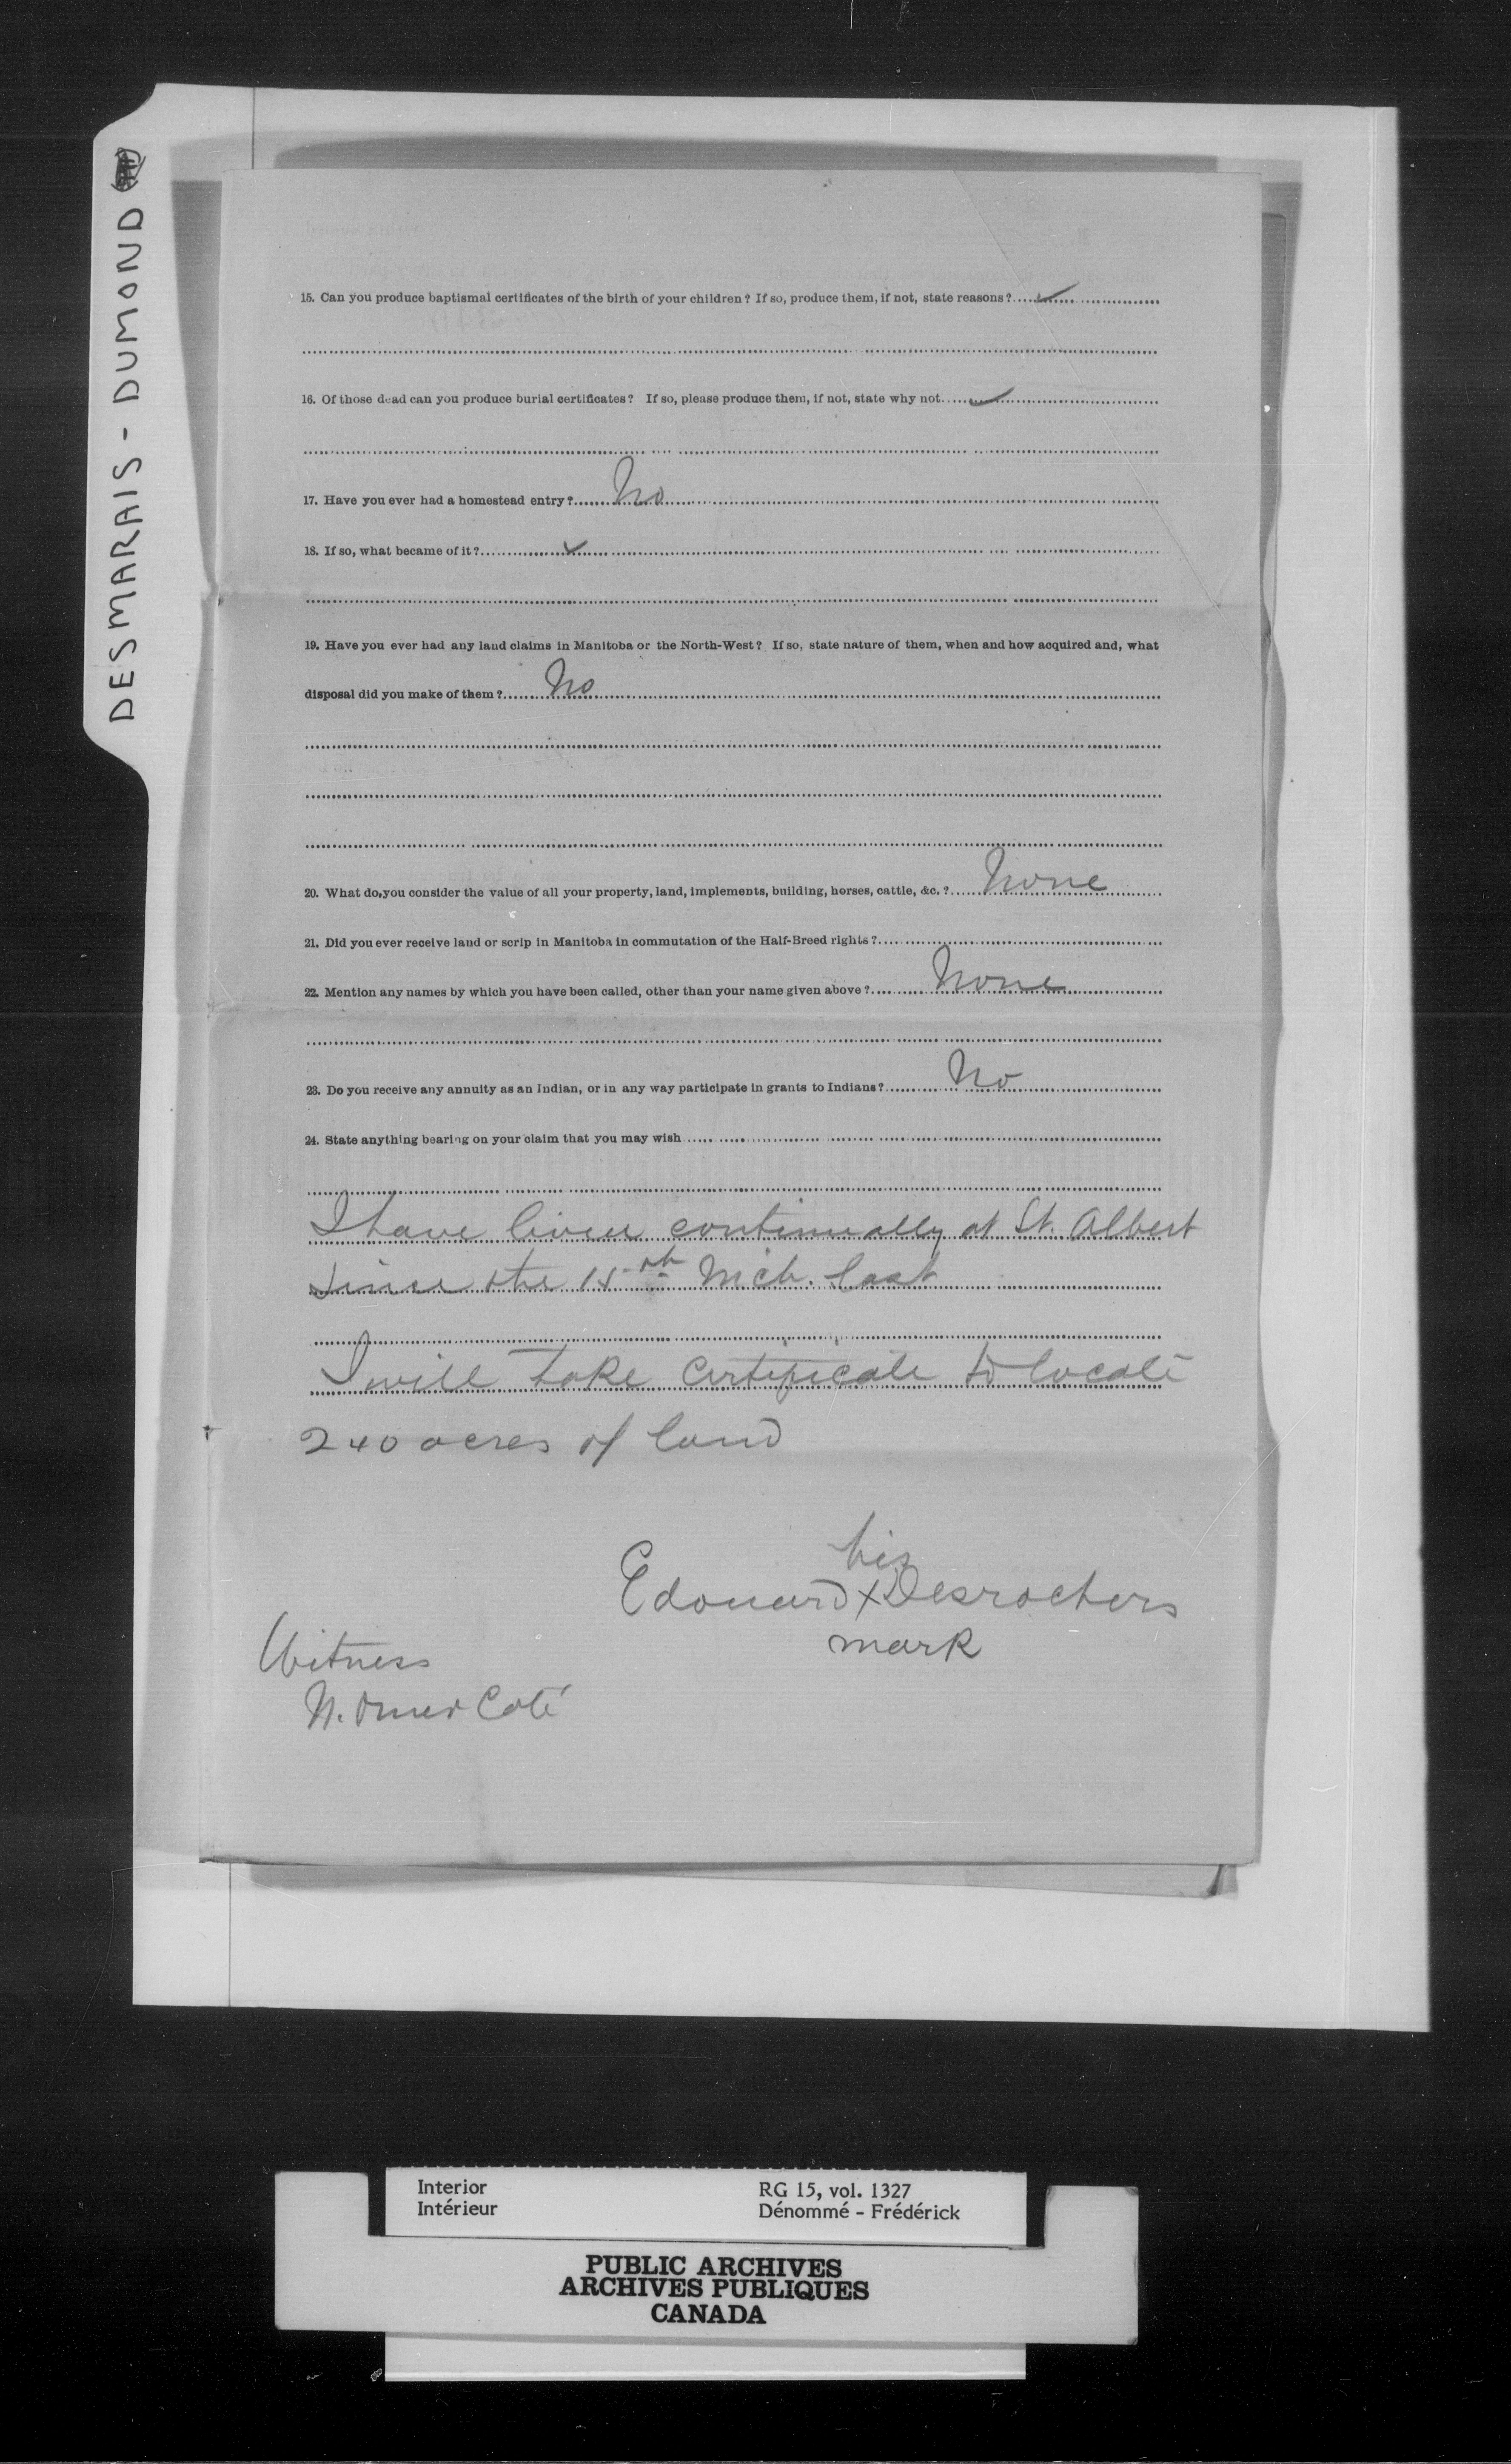 DESMARAIS - DUMOND
15. Can you produce baptismal certificates of the birth of your children? If so, produce them, if not, state reasons? ✓
16. Of those dead can you produce burial certificates? If so, please produce them, if not, state why not ✓
17. Have you ever had a homestead entry? No
18. If so, what became of it? ✓
19. Have you ever had any land claims in Manitoba or the North-West? If so, state nature of them, when and how acquired and, what
disposal did you make of them? No
20. What do you consider the value of all your property, land, implements, building, horses, cattle, &c.? None
21. Did you ever receive land or scrip in Manitoba in commutation of the Half-Breed rights?
22. Mention any names by which you have been called, other than your name given above? None
23. Do you receive any annuity as an Indian, or in any way participate in grants to Indians? No
24. State anything bearing on your claim that you may wish
I have lived continually at St. Albert
since the Mch. last
I will take certificate to locate
240 acres of land
his
Edouard X Desrochers
mark
Witness
N. Omer Coté
Interior
Intérieur
RG 15, vol. 1327
Dénommé - Frédérick
PUBLIC ARCHIVES
ARCHIVES PUBLIQUES
CANADA